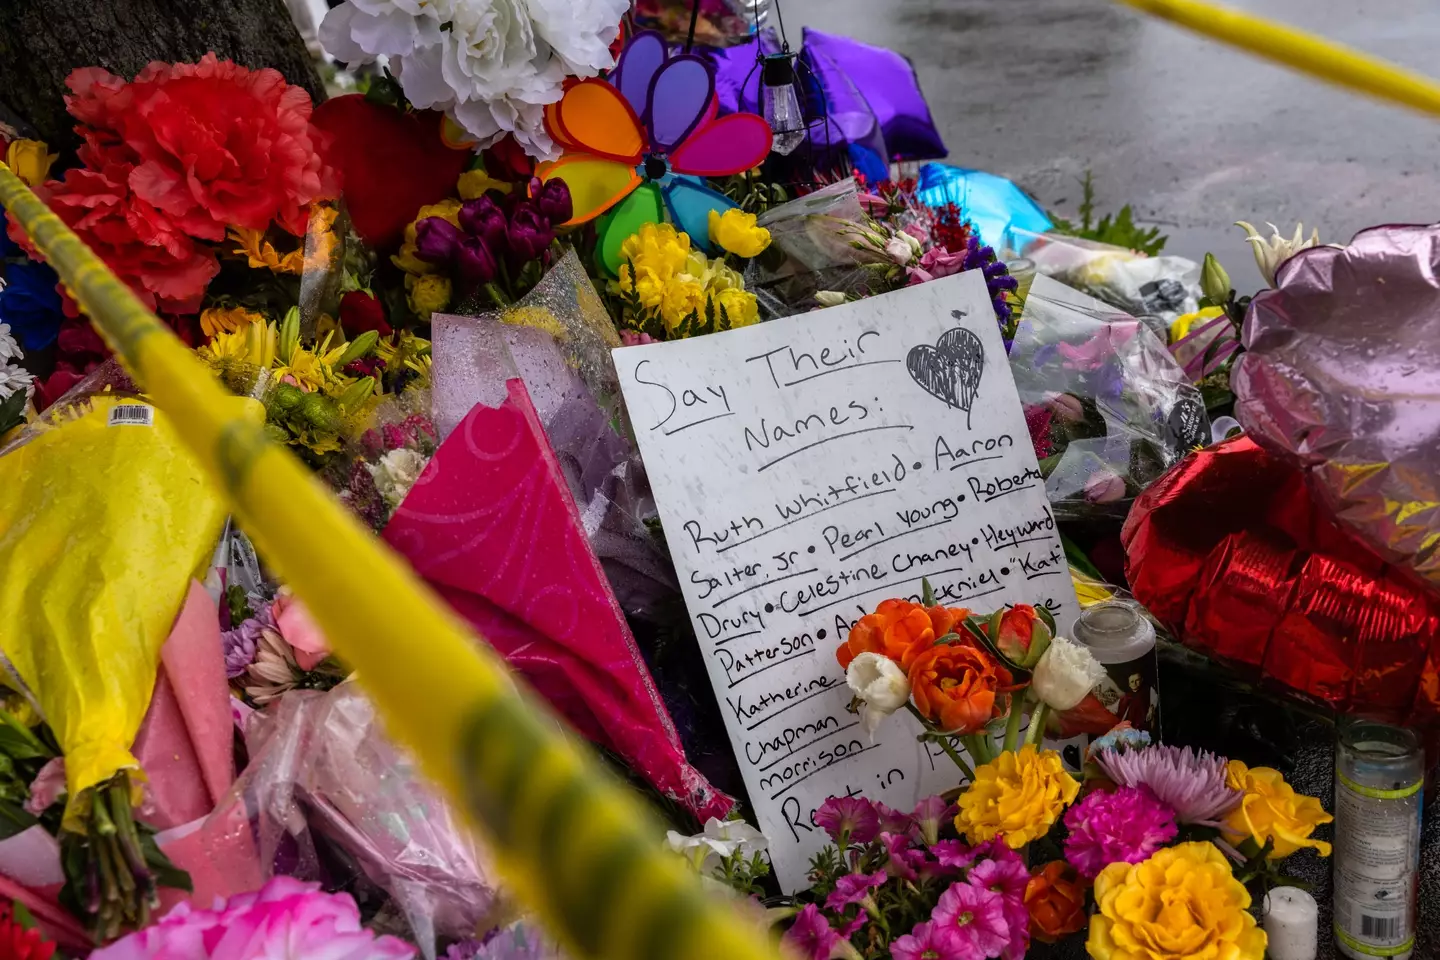 Say Their
Names:
Ruth Whitfield • Aaron
Salter, Jr • Pearl Young • Roberta
Drury • Celestine Chaney • Heyward
Patterson • "Kat"
Katherine
Chapman
morrison
in